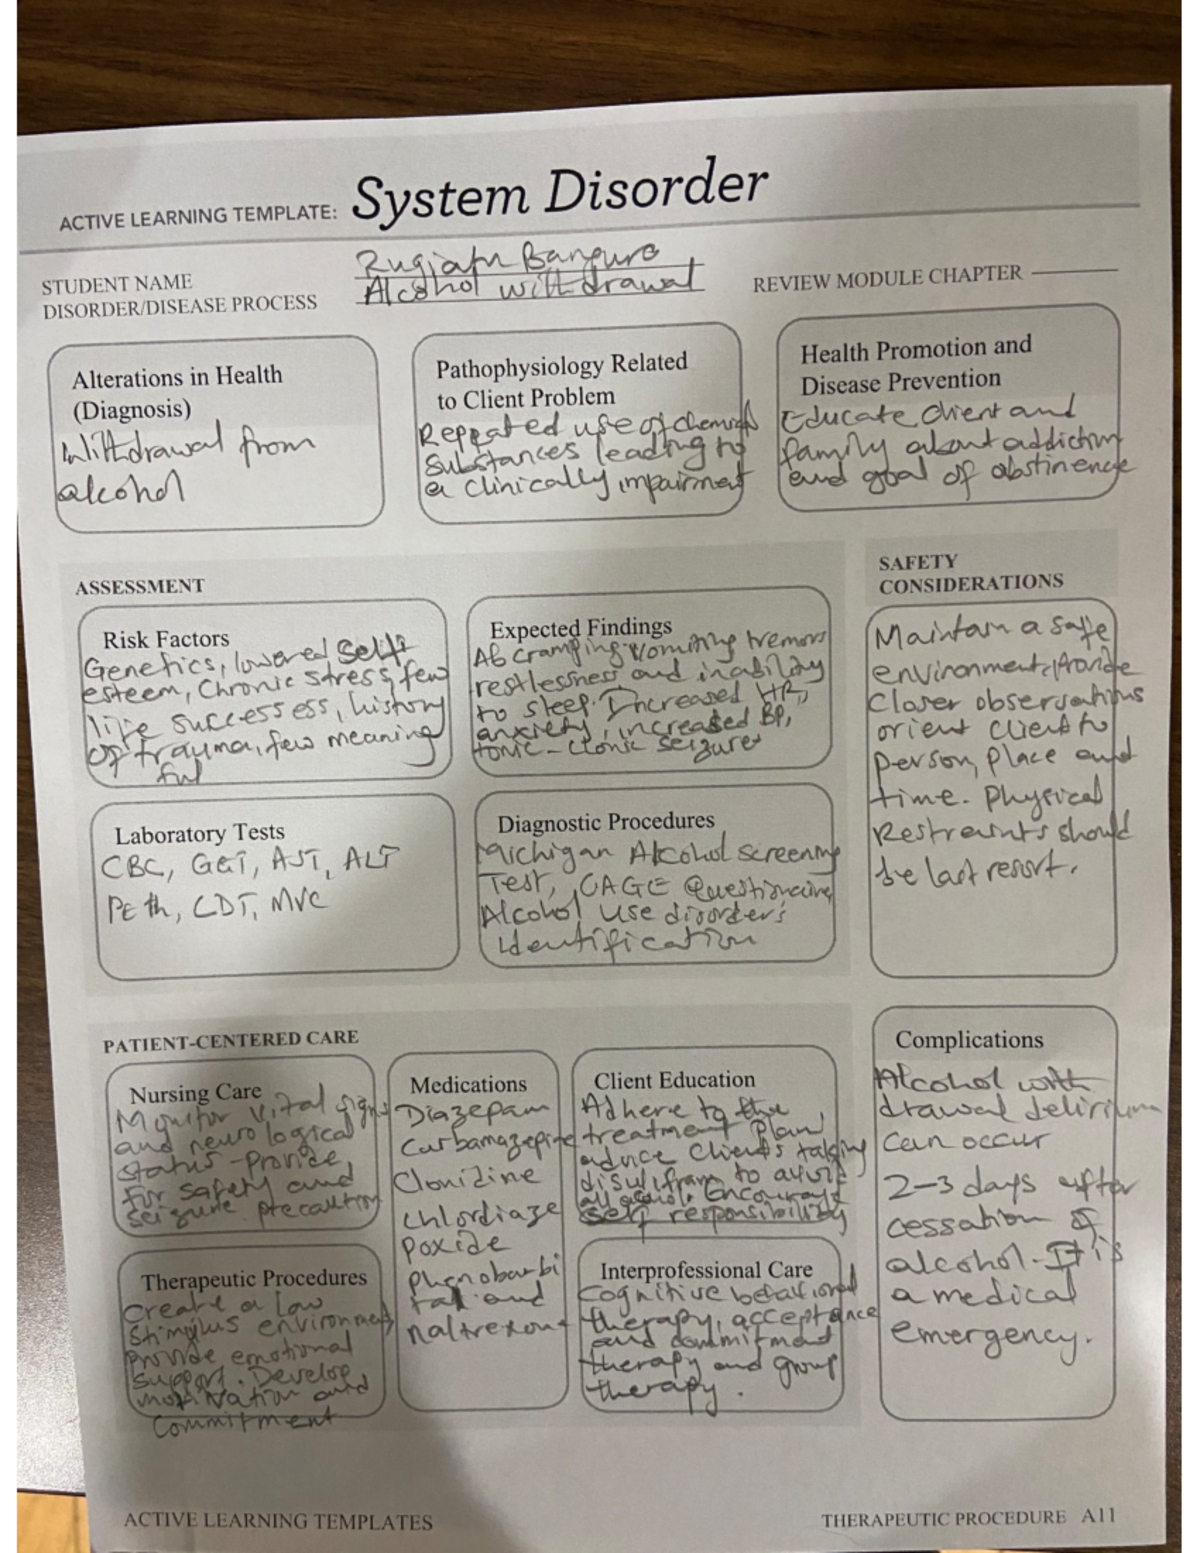 ACTIVE LEARNING TEMPLATE: System Disorder
STUDENT NAME
DISORDER/DISEASE PROCESS Alcohol withdrawal
REVIEW MODULE CHAPTER
Alterations in Health
(Diagnosis)
Withdrawal from
alcohol
Pathophysiology Related
to Client Problem
Repeated use of chemical
substances leading to
a clinically impairment
Health Promotion and
Disease Prevention
Educate client and
family about addiction
and goal of abstinence
ASSESSMENT
Risk Factors
Genetics, lowered self
esteem, Chronic stress, few
life successess, history
of trauma, few meaning
ful
Expected Findings
Ab cramping vomiting tremors
restlessness and inability
to sleep. Increased HR,
anxiety, increased BP,
tonic-clonic seizures
SAFETY
CONSIDERATIONS
Maintain a safe
environment, provide
closer observations
orient client to
person, place and
time. Physical
Restraints should
be last resort.
Laboratory Tests
CBC, GGT, AST, ALT
PEth, CDT, MVC
Diagnostic Procedures
Michigan Alcohol screening
Test, CAGE Questionaire,
Alcohol Use disorders
Identification
PATIENT-CENTERED CARE
Nursing Care
Monitor vital signs
and neurological
status - provide
for safety and
seizure precaution
Medications
Diazepam
Carbamazepine
Clonidine
chlordiaze
poxide
phenobarbi
tal and
naltrexone
Client Education
Adhere to the
treatment plan,
advice clients taking
disulfiram to avoid
all alcohol. Encourage
self responsibility
Complications
Alcohol with
drawal delirium
can occur
2-3 days after
cessation of
alcohol. It is
a medical
emergency.
Therapeutic Procedures
create a low
stimulus environment
provide emotional
support. Develop
motivation and
commitment
Interprofessional Care
Cognitive behavioral
therapy, acceptance
and commitment
therapy and group
therapy.
ACTIVE LEARNING TEMPLATES
THERAPEUTIC PROCEDURE A11